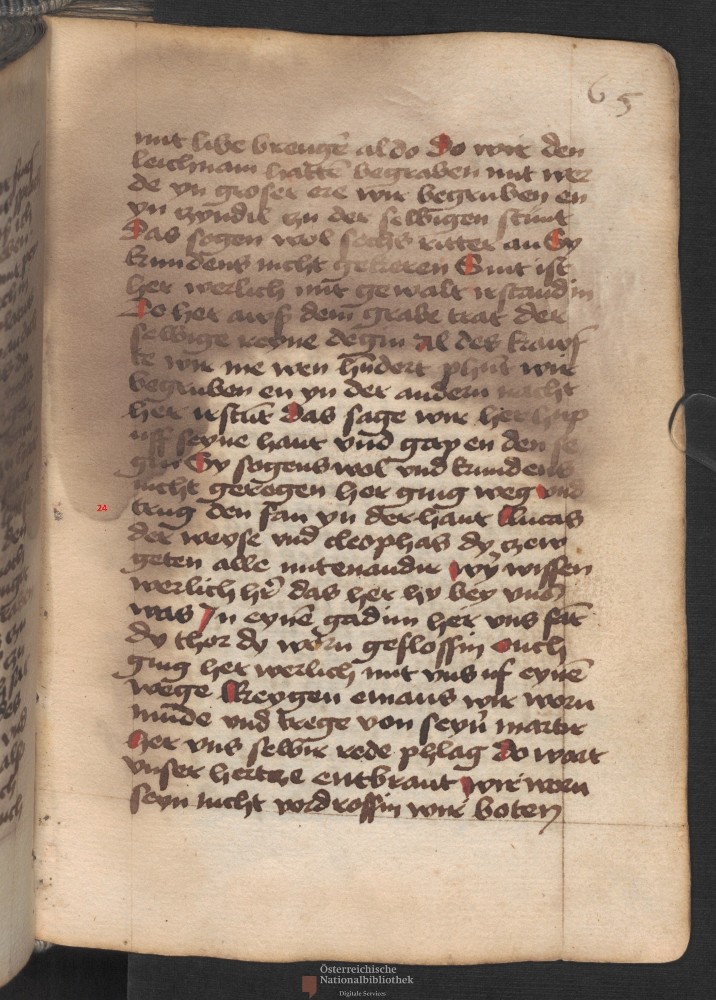 65
mit libe brengē aldo Do wir den
leichnam hattē begraben mit wer
de vn groser ere wir begruben en
yn zyndil zu der selbigen stunt
Das sogen wol sechs ritter an Sy
kundens nicht gekeren Sint ist
her werlich mit gewalt irstandin
Do her awss dem grabe trat der
selbige reyne degin Al des krawf
te wir me wen hundert phūt wir
begruben en yn der andern nacht
her irstūt Das sage wir her hup
uff seyne hant vnd gap en den se
gin Sy sogens wol vnd kundens
nicht geregen her ging weg vnd
24
trug den fan yn der hant Lucas
der weyse vnd cleophas dy zew
geten alle mitenandir wy wissen
werlich hẽ das her hy bey vns
was In eynē gadim her vns fāt
dy thor dy worn geslossin ouch
ging her werlich mit vns uf eynē
wege Keygen emaus wir worn
mude vnd trege von seyn̄ martir
her vns selbir rede phlag do wart
vnser hertcze entbrant wir worn
seyn nicht vordrossin wir boten
Österreichische
Nationalbibliothek
Digitale Services